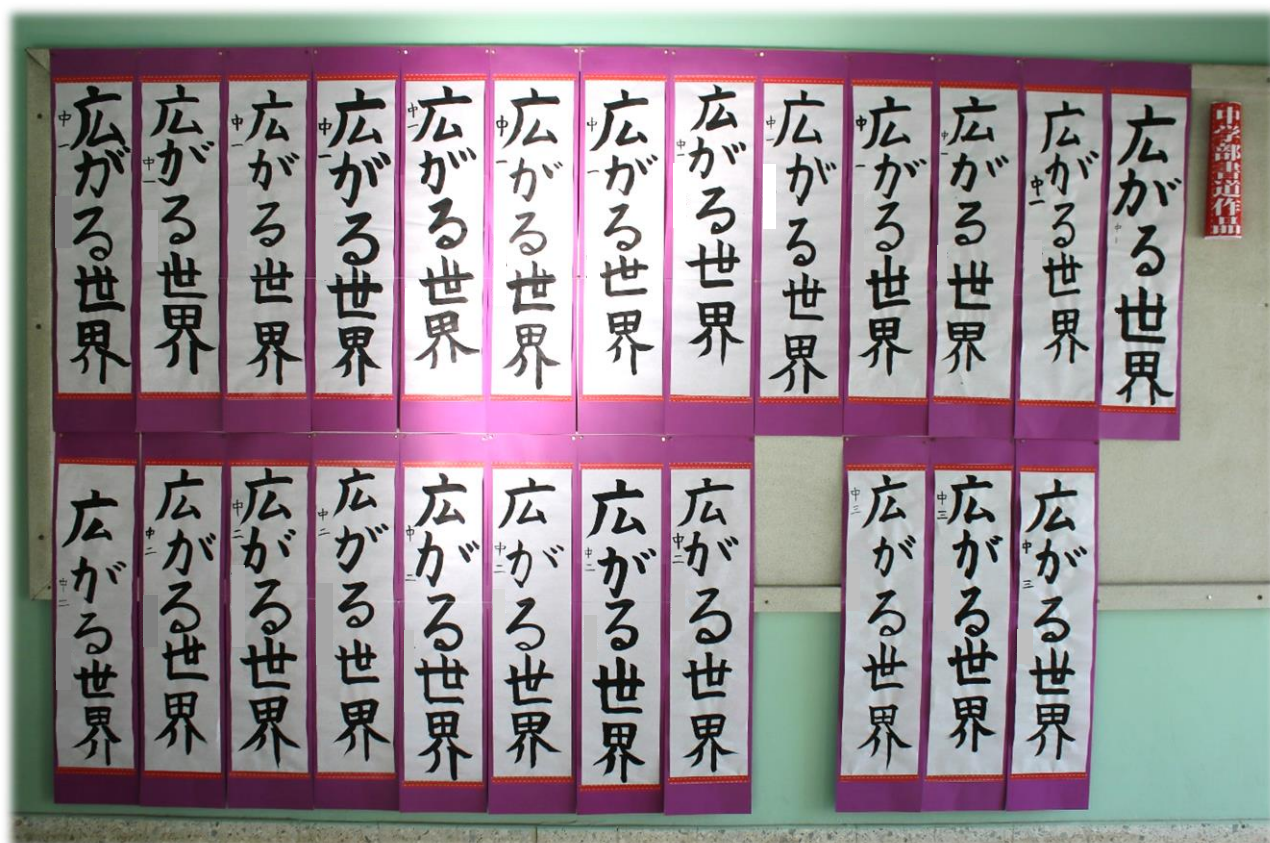 中学部書道作品
広がる世界
中一
広がる世界
中一
広がる世界
中一
広がる世界
中一
広がる世界
中一
広がる世界
中一
広がる世界
中一
広がる世界
中一
広がる世界
中一
広がる世界
中一
広がる世界
中一
広がる世界
中一
広がる世界
中一
広がる世界
中三
広がる世界
中三
広がる世界
中三
広がる世界
中二
広がる世界
中二
広がる世界
中二
広がる世界
中二
広がる世界
中二
広がる世界
中二
広がる世界
中二
広がる世界
中二